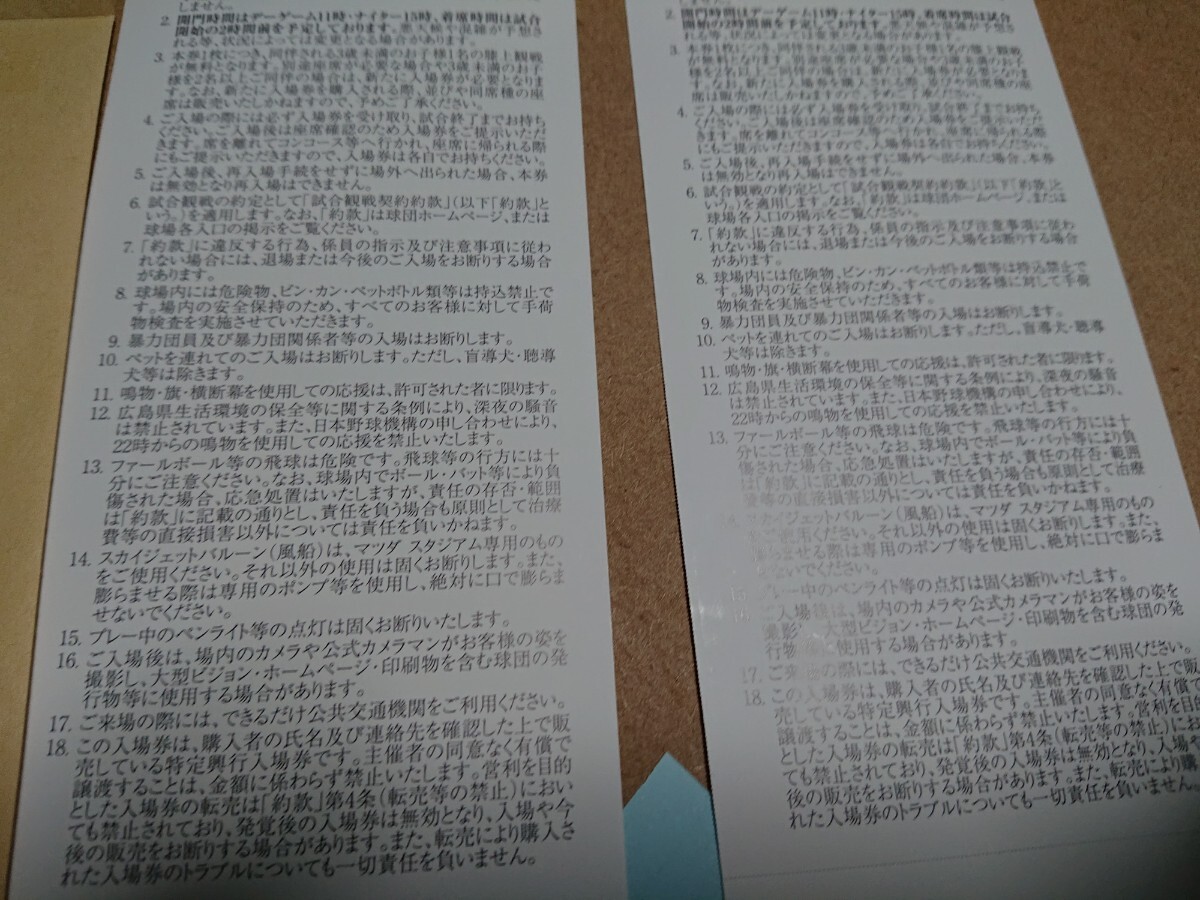 しません。
2. 開門時間はデーゲーム11時・ナイター15時、着席時間は試合
開始の2時間前を予定しております。悪天候や混雑が予想さ
れる等、状況によっては変更となる場合があります。
3. 本券1枚につき、同伴される3歳未満のお子様1名の膝上観戦
が無料となります。別途座席が必要な場合や3歳未満のお子
様を2名以上ご同伴の場合は、新たに入場券が必要となりま
す。なお、新たに入場券を購入する際、並びや同席種の座
席は販売いたしかねますので、予めご了承ください。
4. ご入場の際には必ず入場券を受け取り、試合終了までお持ち
ください。ご入場後は座席確認のため入場券をご提示いただ
きます。席を離れてコンコース等へ行かれ、座席に帰られる際
にもご提示いただきますので、入場券は各自でお持ちください。
5. ご入場後、再入場手続をせずに場外へ出られた場合、本券
は無効となり再入場はできません。
6. 試合観戦の約定として「試合観戦契約約款」(以下「約款」と
いう。)を適用します。なお、「約款」は球団ホームページ、または
球場各入口の掲示をご覧ください。
7. 「約款」に違反する行為、係員の指示及び注意事項に従わ
れない場合には、退場または今後のご入場をお断りする場合
があります。
8. 球場内には危険物、ビン・カン・ペットボトル類等は持込禁止で
す。場内の安全保持のため、すべてのお客様に対して手荷
物検査を実施させていただきます。
9. 暴力団員及び暴力団関係者等の入場はお断りします。
10. ペットを連れてのご入場はお断りします。ただし、盲導犬・聴導
犬等は除きます。
11. 鳴物・旗・横断幕を使用しての応援は、許可された者に限ります。
12. 広島県生活環境の保全等に関する条例により、深夜の騒音
は禁止されています。また、日本野球機構の申し合わせにより、
22時からの鳴物を使用しての応援を禁止いたします。
13. ファールボール等の飛球は危険です。飛球等の行方には十
分にご注意ください。なお、球場内でボール・バット等により負
傷された場合、応急処置はいたしますが、責任の存否・範囲
は「約款」に記載の通りとし、責任を負う場合も原則として治療
費等の直接損害以外については責任を負いかねます。
14. スカイジェットバルーン(風船)は、マツダ スタジアム専用のもの
をご使用ください。それ以外の使用は固くお断りします。また、
膨らませる際は専用のポンプ等を使用し、絶対に口で膨らま
せないでください。
15. プレー中のペンライト等の点灯は固くお断りいたします。
16. ご入場後は、場内のカメラや公式カメラマンがお客様の姿を
撮影し、大型ビジョン・ホームページ・印刷物を含む球団の発
行物等に使用する場合があります。
17. ご来場の際には、できるだけ公共交通機関をご利用ください。
18. この入場券は、購入者の氏名及び連絡先を確認した上で販
売している特定興行入場券です。主催者の同意なく有償で
譲渡することは、金額に係わらず禁止いたします。営利を目的
とした入場券の転売は「約款」第4条(転売等の禁止)におい
ても禁止されており、発覚後の入場券は無効となり、入場や今
後の販売をお断りする場合があります。また、転売により購入さ
れた入場券のトラブルについても一切責任を負いません。
しません。
2. 開門時間はデーゲーム11時・ナイター15時、着席時間は試合
開始の2時間前を予定しております。悪天候や混雑が予想さ
れる等、状況によっては変更となる場合があります。
3. 本券1枚につき、同伴される3歳未満のお子様1名の膝上観戦
が無料となります。別途座席が必要な場合や3歳未満のお子
様を2名以上ご同伴の場合は、新たに入場券が必要となりま
す。なお、新たに入場券を購入する際、並びや同席種の座
席は販売いたしかねますので、予めご了承ください。
4. ご入場の際には必ず入場券を受け取り、試合終了までお持ち
ください。ご入場後は座席確認のため入場券をご提示いただ
きます。席を離れてコンコース等へ行かれ、座席に帰られる際
にもご提示いただきますので、入場券は各自でお持ちください。
5. ご入場後、再入場手続をせずに場外へ出られた場合、本券
は無効となり再入場はできません。
6. 試合観戦の約定として「試合観戦契約約款」(以下「約款」と
いう。)を適用します。なお、「約款」は球団ホームページ、または
球場各入口の掲示をご覧ください。
7. 「約款」に違反する行為、係員の指示及び注意事項に従わ
れない場合には、退場または今後のご入場をお断りする場合
があります。
8. 球場内には危険物、ビン・カン・ペットボトル類等は持込禁止で
す。場内の安全保持のため、すべてのお客様に対して手荷
物検査を実施させていただきます。
9. 暴力団員及び暴力団関係者等の入場はお断りします。
10. ペットを連れてのご入場はお断りします。ただし、盲導犬・聴導
犬等は除きます。
11. 鳴物・旗・横断幕を使用しての応援は、許可された者に限ります。
12. 広島県生活環境の保全等に関する条例により、深夜の騒音
は禁止されています。また、日本野球機構の申し合わせにより、
22時からの鳴物を使用しての応援を禁止いたします。
13. ファールボール等の飛球は危険です。飛球等の行方には十
分にご注意ください。なお、球場内でボール・バット等により負
傷された場合、応急処置はいたしますが、責任の存否・範囲
は「約款」に記載の通りとし、責任を負う場合も原則として治療
等の直接損害以外については責任を負いかねます。
スカイジェットバルーン(風船)は、マツダ スタジアム専用のもの
ご使用ください。それ以外の使用は固くお断りします。また、
ませる際は専用のポンプ等を使用し、絶対に口で膨らま
ないでください。
プレー中のペンライト等の点灯は固くお断りいたします。
ご入場後は、場内のカメラや公式カメラマンがお客様の姿を
撮影 大型ビジョン・ホームページ・印刷物を含む球団の発
行物 に使用する場合があります。
17. ご来 の際には、できるだけ公共交通機関をご利用ください。
18. この入場券は、購入者の氏名及び連絡先を確認した上で販
売している特定興行入場券です。主催者の同意なく有償で
譲渡することは、金額に係わらず禁止いたします。営利を目的
とした入場券の転売は「約款」第4条(転売等の禁止)にお
ても禁止されており、発覚後の入場券は無効となり、入場や
後の販売をお断りする場合があります。また、転売により購入
れた入場券のトラブルについても一切責任を負いません。